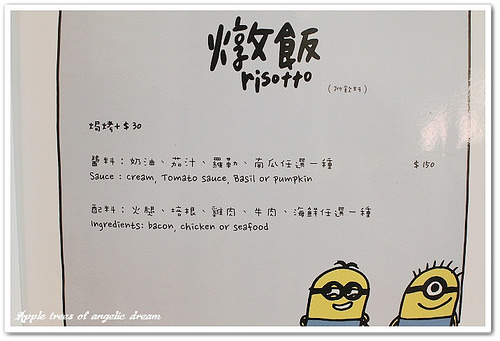 燉飯
risotto
(附飲料)
焗烤+$30
醬料：奶油、茄汁、羅勒、南瓜任選一種 $150
Sauce : cream, Tomato sauce, Basil or pumpkin
配料：火腿、培根、雞肉、牛肉、海鮮任選一種
Ingredients: bacon, chicken or seafood
Apple trees of angelic dream